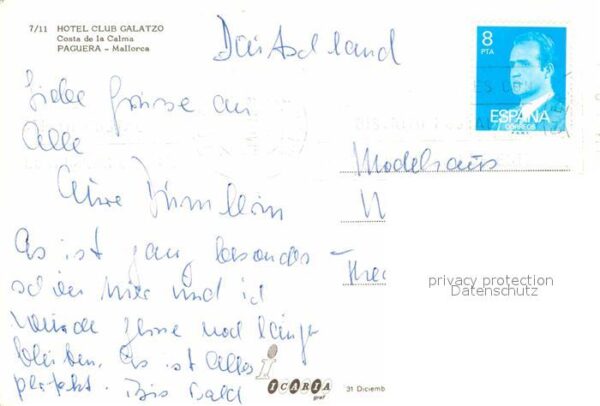 7/11 HOTEL CLUB GALATZO
Costa de la Calma
PAGUERA - Mallorca
Deutschland
8
PTA
ESPAÑA
CORREOS
Liebe Grüsse an
Alle
Modehaus
Es ist ganz besonders
schön hier und ich
würde gerne noch länger
bleiben. Es ist Alles
perfekt. Bis Bald
privacy protection
Datenschutz
ICARIA
graf
31 Diciemb